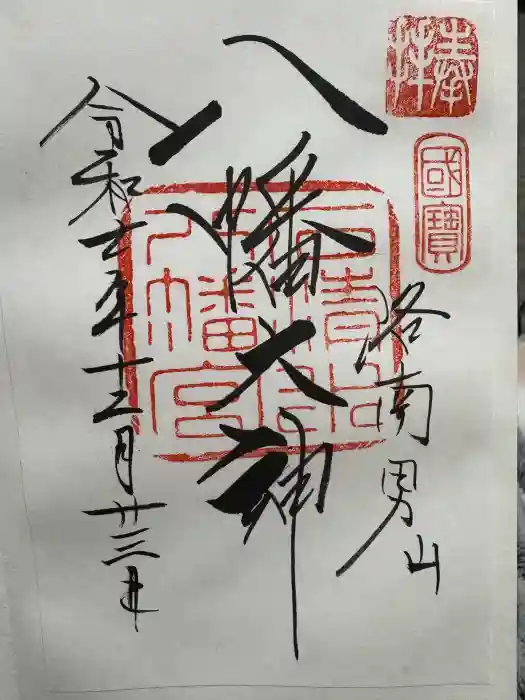 奉拝
國寶
洛南男山
八幡大神
石清水八幡宮
令和七年十二月廿三日